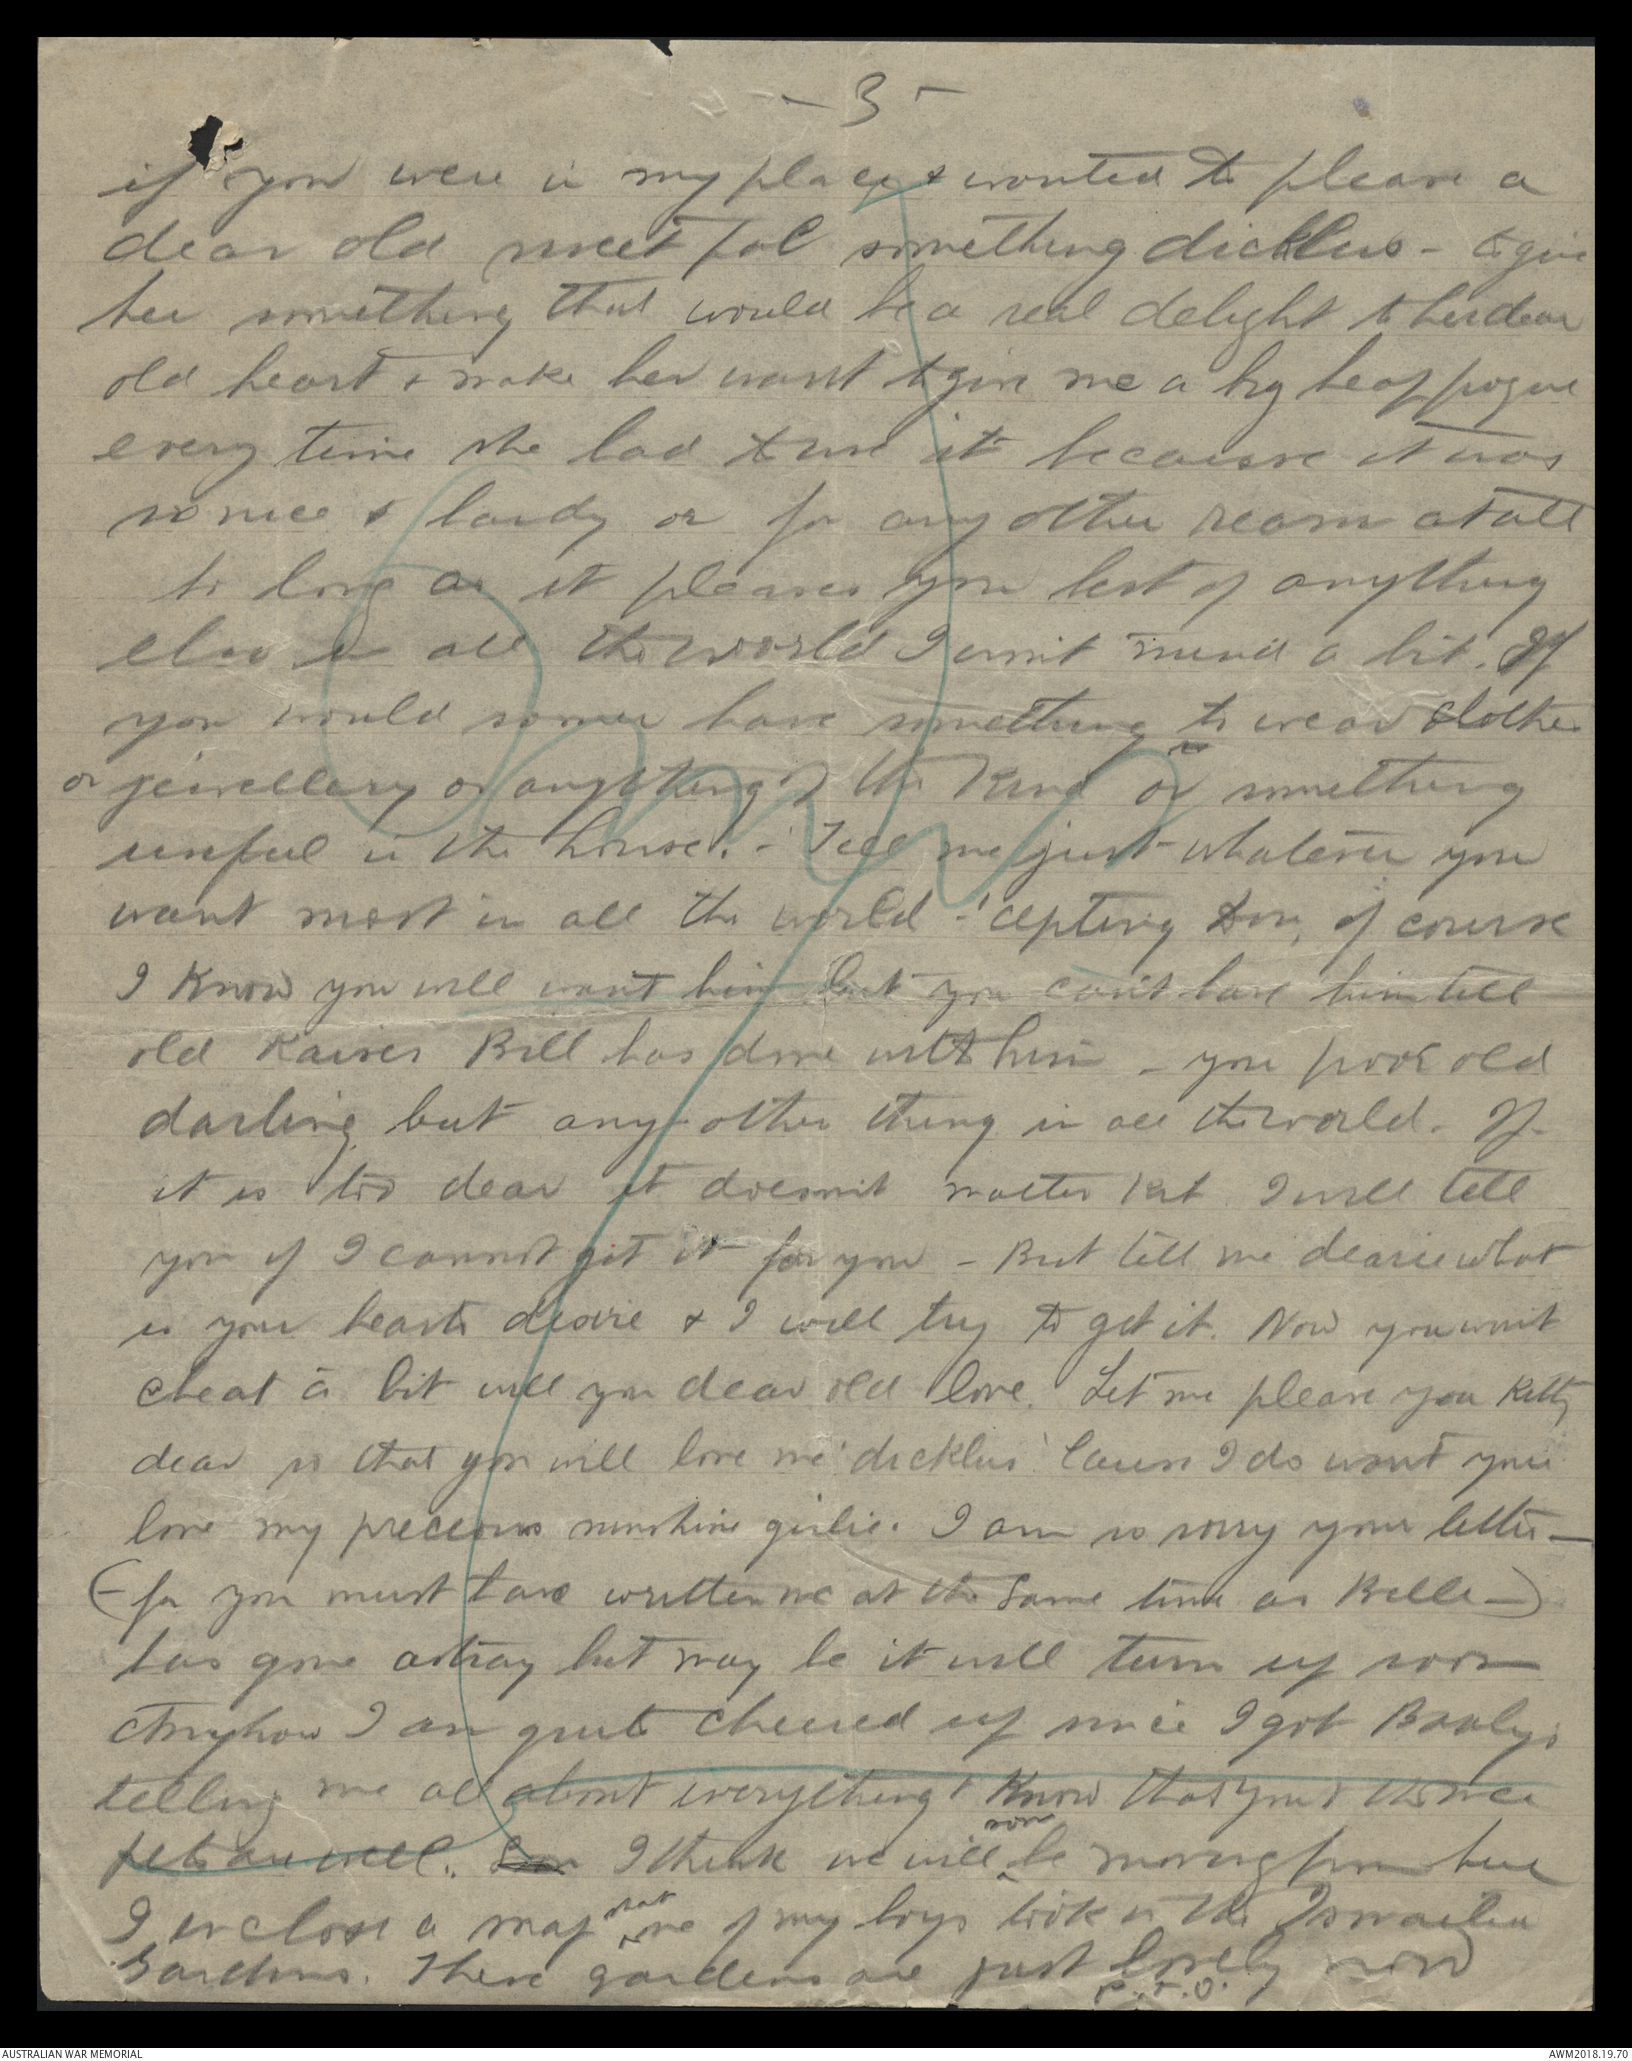 - 3 -
if you were in my place & wanted to please a
dear old sweet pal something dicklus - to give
her something that would be a real delight to her dear
old heart & make her want to give me a big heap pogue
every time she had to use it because it was
so nice & handy or for any other reason at all
So long as it pleases you best of anything
else in all the world I wont mind a bit. If
you would sooner have something to wear clothes
or jewellery or anything of the kind or something
useful in the house. - Tell me just whatever you
want most in all the world - 'cepting Don, of course
I Know you will want him but you can't have him till
old Kaiser Bill has done with him - you poor old
darling but any other thing in all the world. If
it is too dear it doesnt matter Kit I will tell
you if I cannot get it for you - But tell me dearie what
is your hearts desire & I will try to get it. Now you wont
cheat a bit will you dear old love. Let me please you Kitty
dear so that you will love me 'dicklus' 'cause I do want your
love my precious sunshine girlie. I am so sorry your letter -
(- for you must have written me at the same time as Belle -)
has gone astray but may be it will turn up soon
Anyhow I am quite cheered up since I got
telling me all about everything & Know that you & the wee
pets are well. I think we will soon be moving from here
I enclose a snap that one of my boys took in the Ismailia
Gardens. These gardens are just lovely now
P.T.O.
Omit
AUSTRALIAN WAR MEMORIAL
AWM2018.19.70